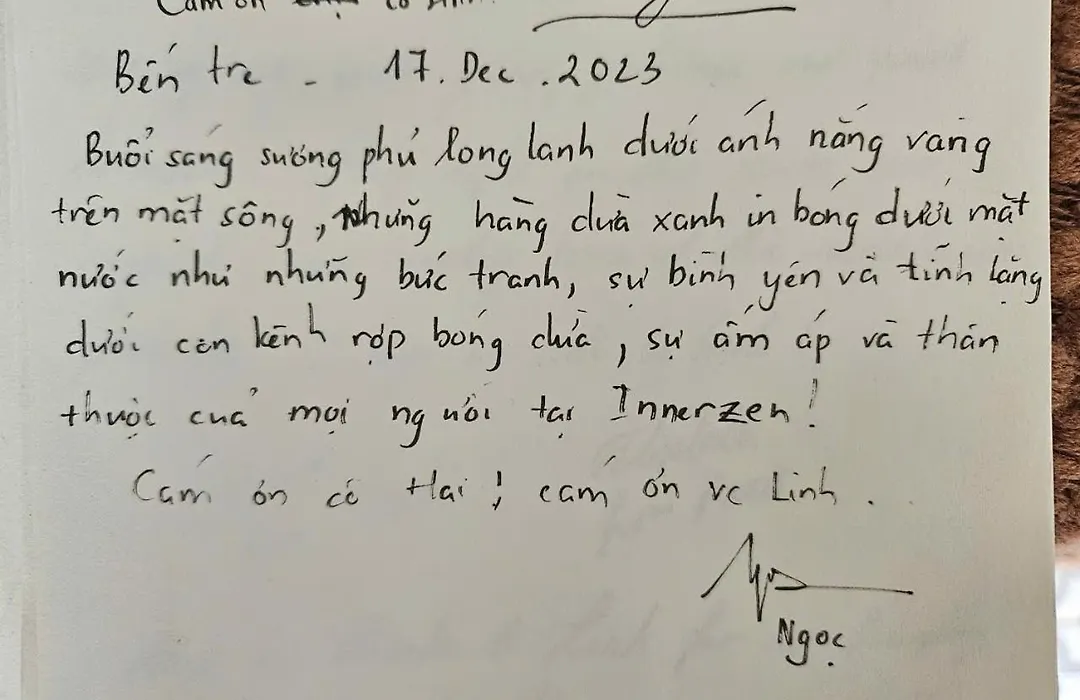 Cảm ơn
Bến tre - 17. Dec. 2023
Buổi sáng sương phủ long lanh dưới ánh nắng vàng
trên mặt sông, những hàng dừa xanh in bóng dưới mặt
nước như những bức tranh, sự bình yên và tĩnh lặng
dưới con kênh rợp bóng dừa, sự ấm áp và thân
thuộc của mọi người tại Innerzen!
Cám ơn cô Hai! cám ơn vc Linh.
Ngọc